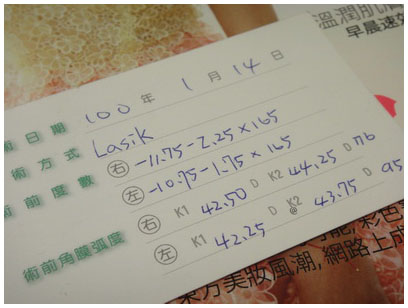 溫潤肌
早晨速效
術日期 100 年 1 月 14 日
術方式 Lasik
術前度數 右 -11.75 -2.25 × 165
左 -10.75 -1.75 × 165
術前角膜弧度 右 K1 42.50 D K2 44.25 D 76
左 K1 42.25 D K2 @ 43.75 D 95
東方美妝風潮,網路上成